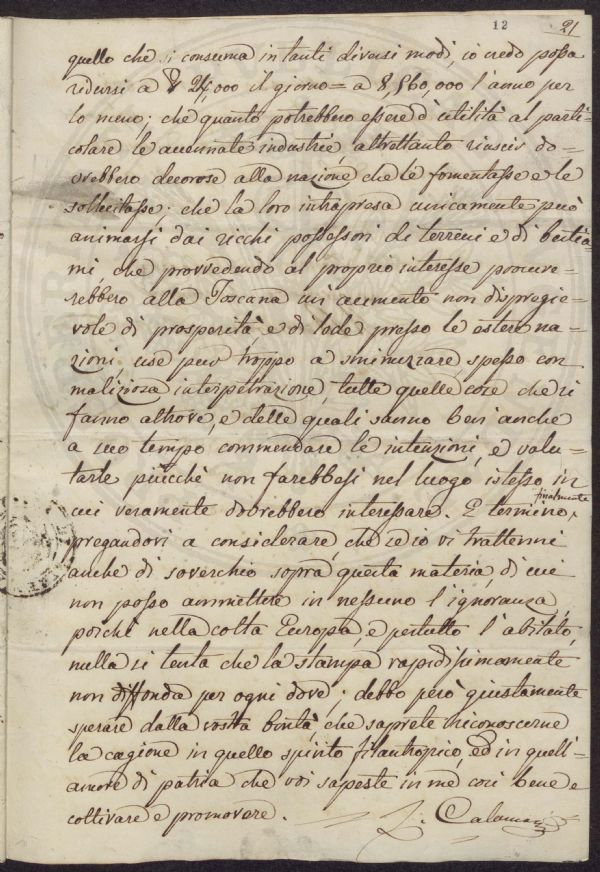 12 21
quello che si consuma in tanti diversi modi, io credo possa
ridursi a 24,000 il giorno = a 8,560,000 l'anno per
lo meno; che quanto potrebbero essere d'utilità al parti=
colare le accennate industrie, altrettanto riuscir do=
vrebbero decorose alla nazione che le fomentasse e le
sollecitasse; che la loro intrapresa unicamente può
animarsi dai ricchi possessori di terreni e di bestia=
mi, che provvedendo al proprio interesse procure=
rebbero alla Toscana un aumento non dispregie=
vole di prosperità, e di lode presso le estere na=
zioni, use pur troppo a sminuzzare spesso con
maliziosa interpetrazione, tutte quelle cose che si
fanno altrove, e delle quali sanno ben anche
a suo tempo commendare le intenzioni, e valu=
tarle piucchè non farebbesi nel luogo istesso in
cui veramente dovrebbero interessare. E termino finalmente
pregandovi a considerare, che se io vi trattenni
anche di soverchio sopra questa materia, di cui
non posso ammettere in nessuno l'ignoranza,
poichè nella colta Europa, e pertutto l'abitato,
nulla si tenta che la stampa rapidissimamente
non diffonda per ogni dove; debbo però giustamente
sperare dalla vostra bontà, che saprete riconoscerne
la cagione in quello spirito filantropico, ed in quell'
amore di patria che voi sapeste in me così bene e
coltivare e promovere.